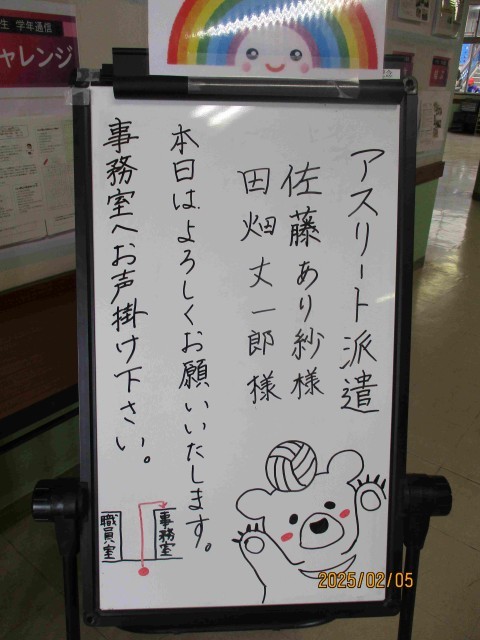 生 学年通信
ャレンジ
アスリート派遣
佐藤あり紗様
田畑丈一郎様
本日はよろしくお願いいたします。
事務室へお声掛け下さい。
事務室
職員室
2025/02/05